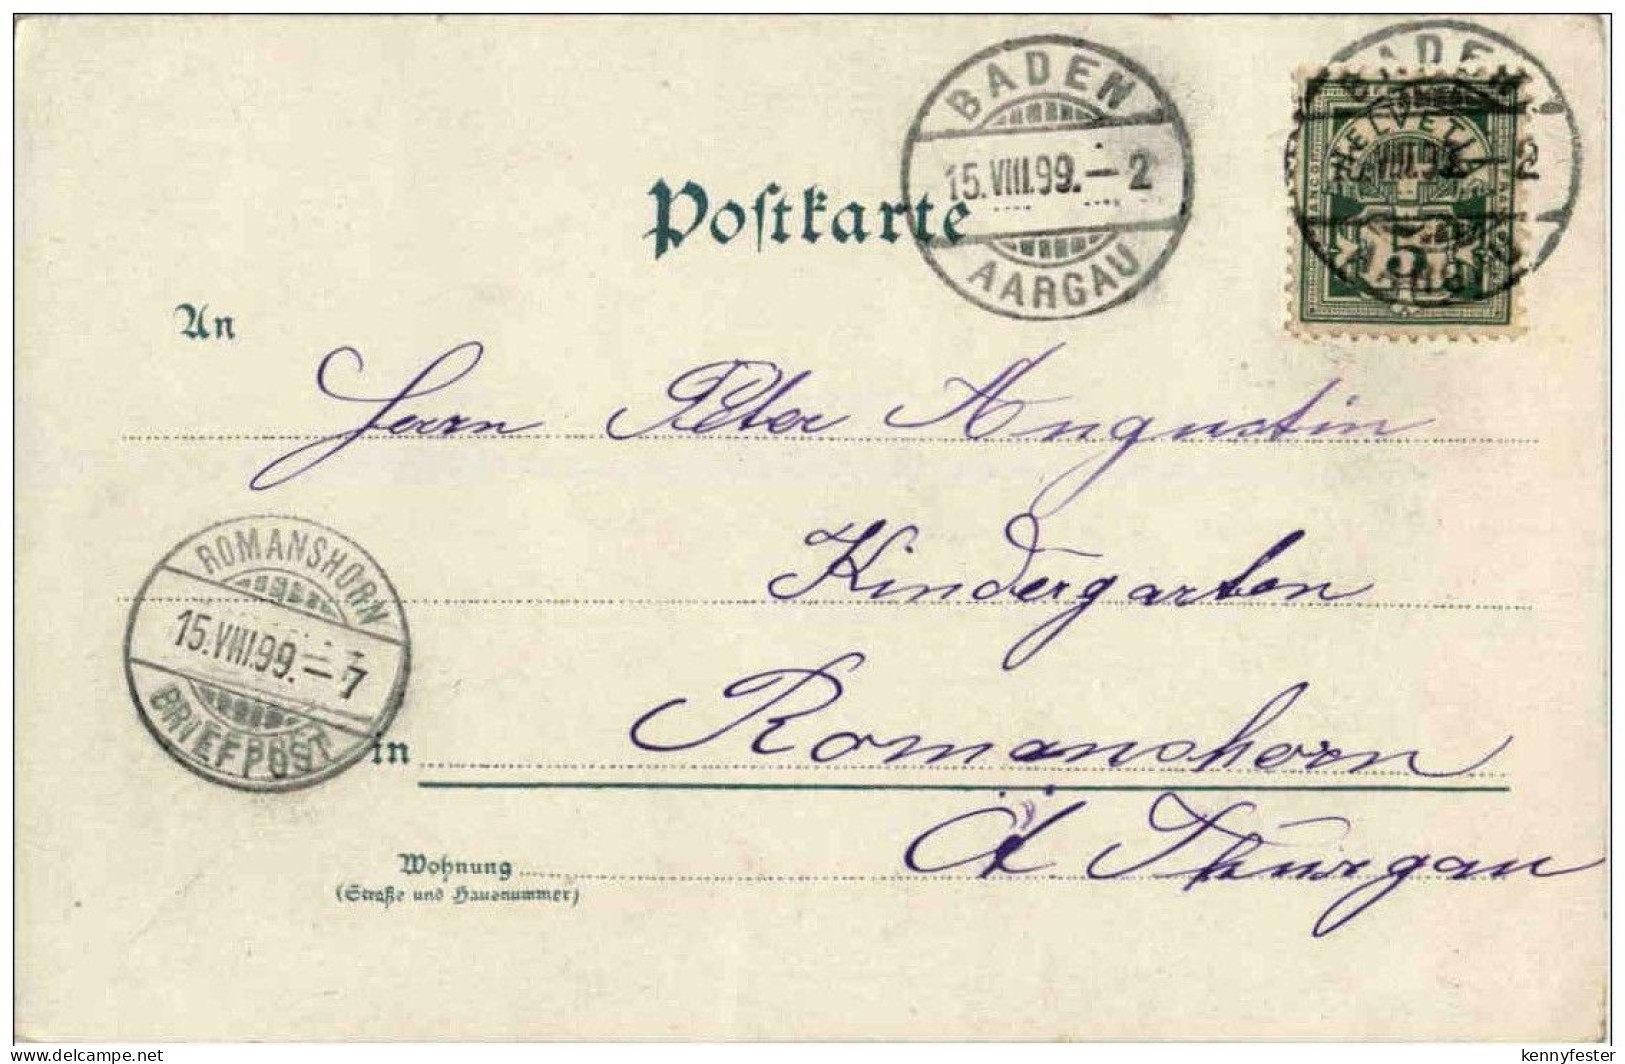 BADEN
15.VIII.99.–2
AARGAU
BADEN
VIII.99.–2
AARGAU
HELVETIA
5
Postkarte
An
Herrn Peter Augustin
Kindergarten
ROMANSHORN
15.VIII.99.–7
BRIEFPOST
in Romanshorn
Ct. Thurgau
Wohnung
(Straße und Hausnummer)
Delcampe.net
kennyfester